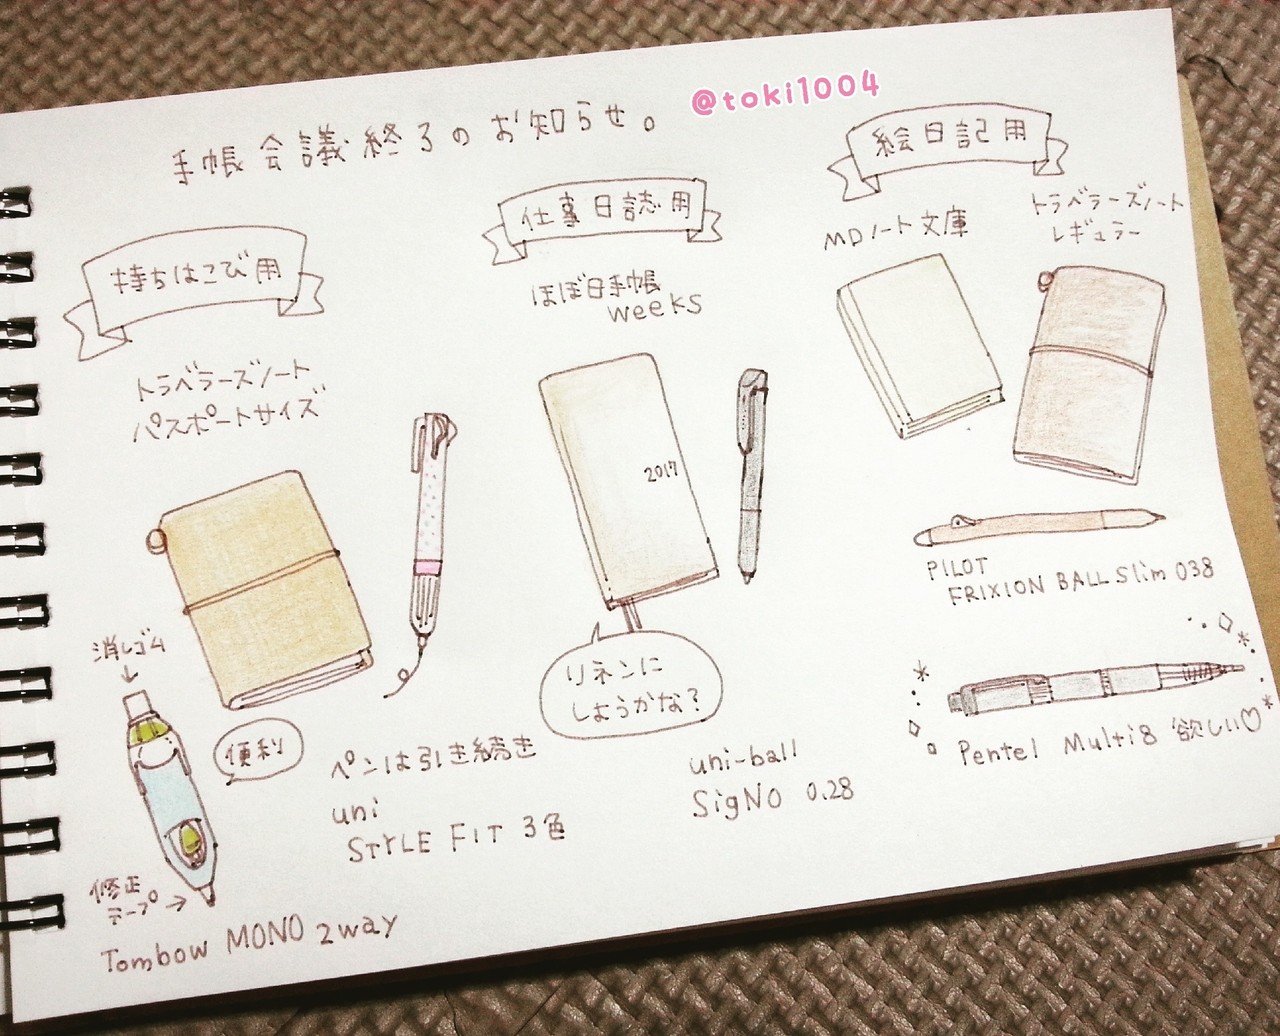 @toki1004
手帳会議終了のお知らせ。
持ちはこび用
トラベラーズノート
パスポートサイズ
消しゴム
便利
修正
テープ
Tombow MONO 2way
ペンは引き続き
uni
STYLE FIT 3色
仕事日誌用
ほぼ日手帳
weeks
2017
リネンに
しようかな?
uni-ball
SigNO 0.28
絵日記用
MDノート文庫
トラベラーズノート
レギュラー
PILOT
FRIXION BALL Slim 038
Pentel Multi8 欲しい♡